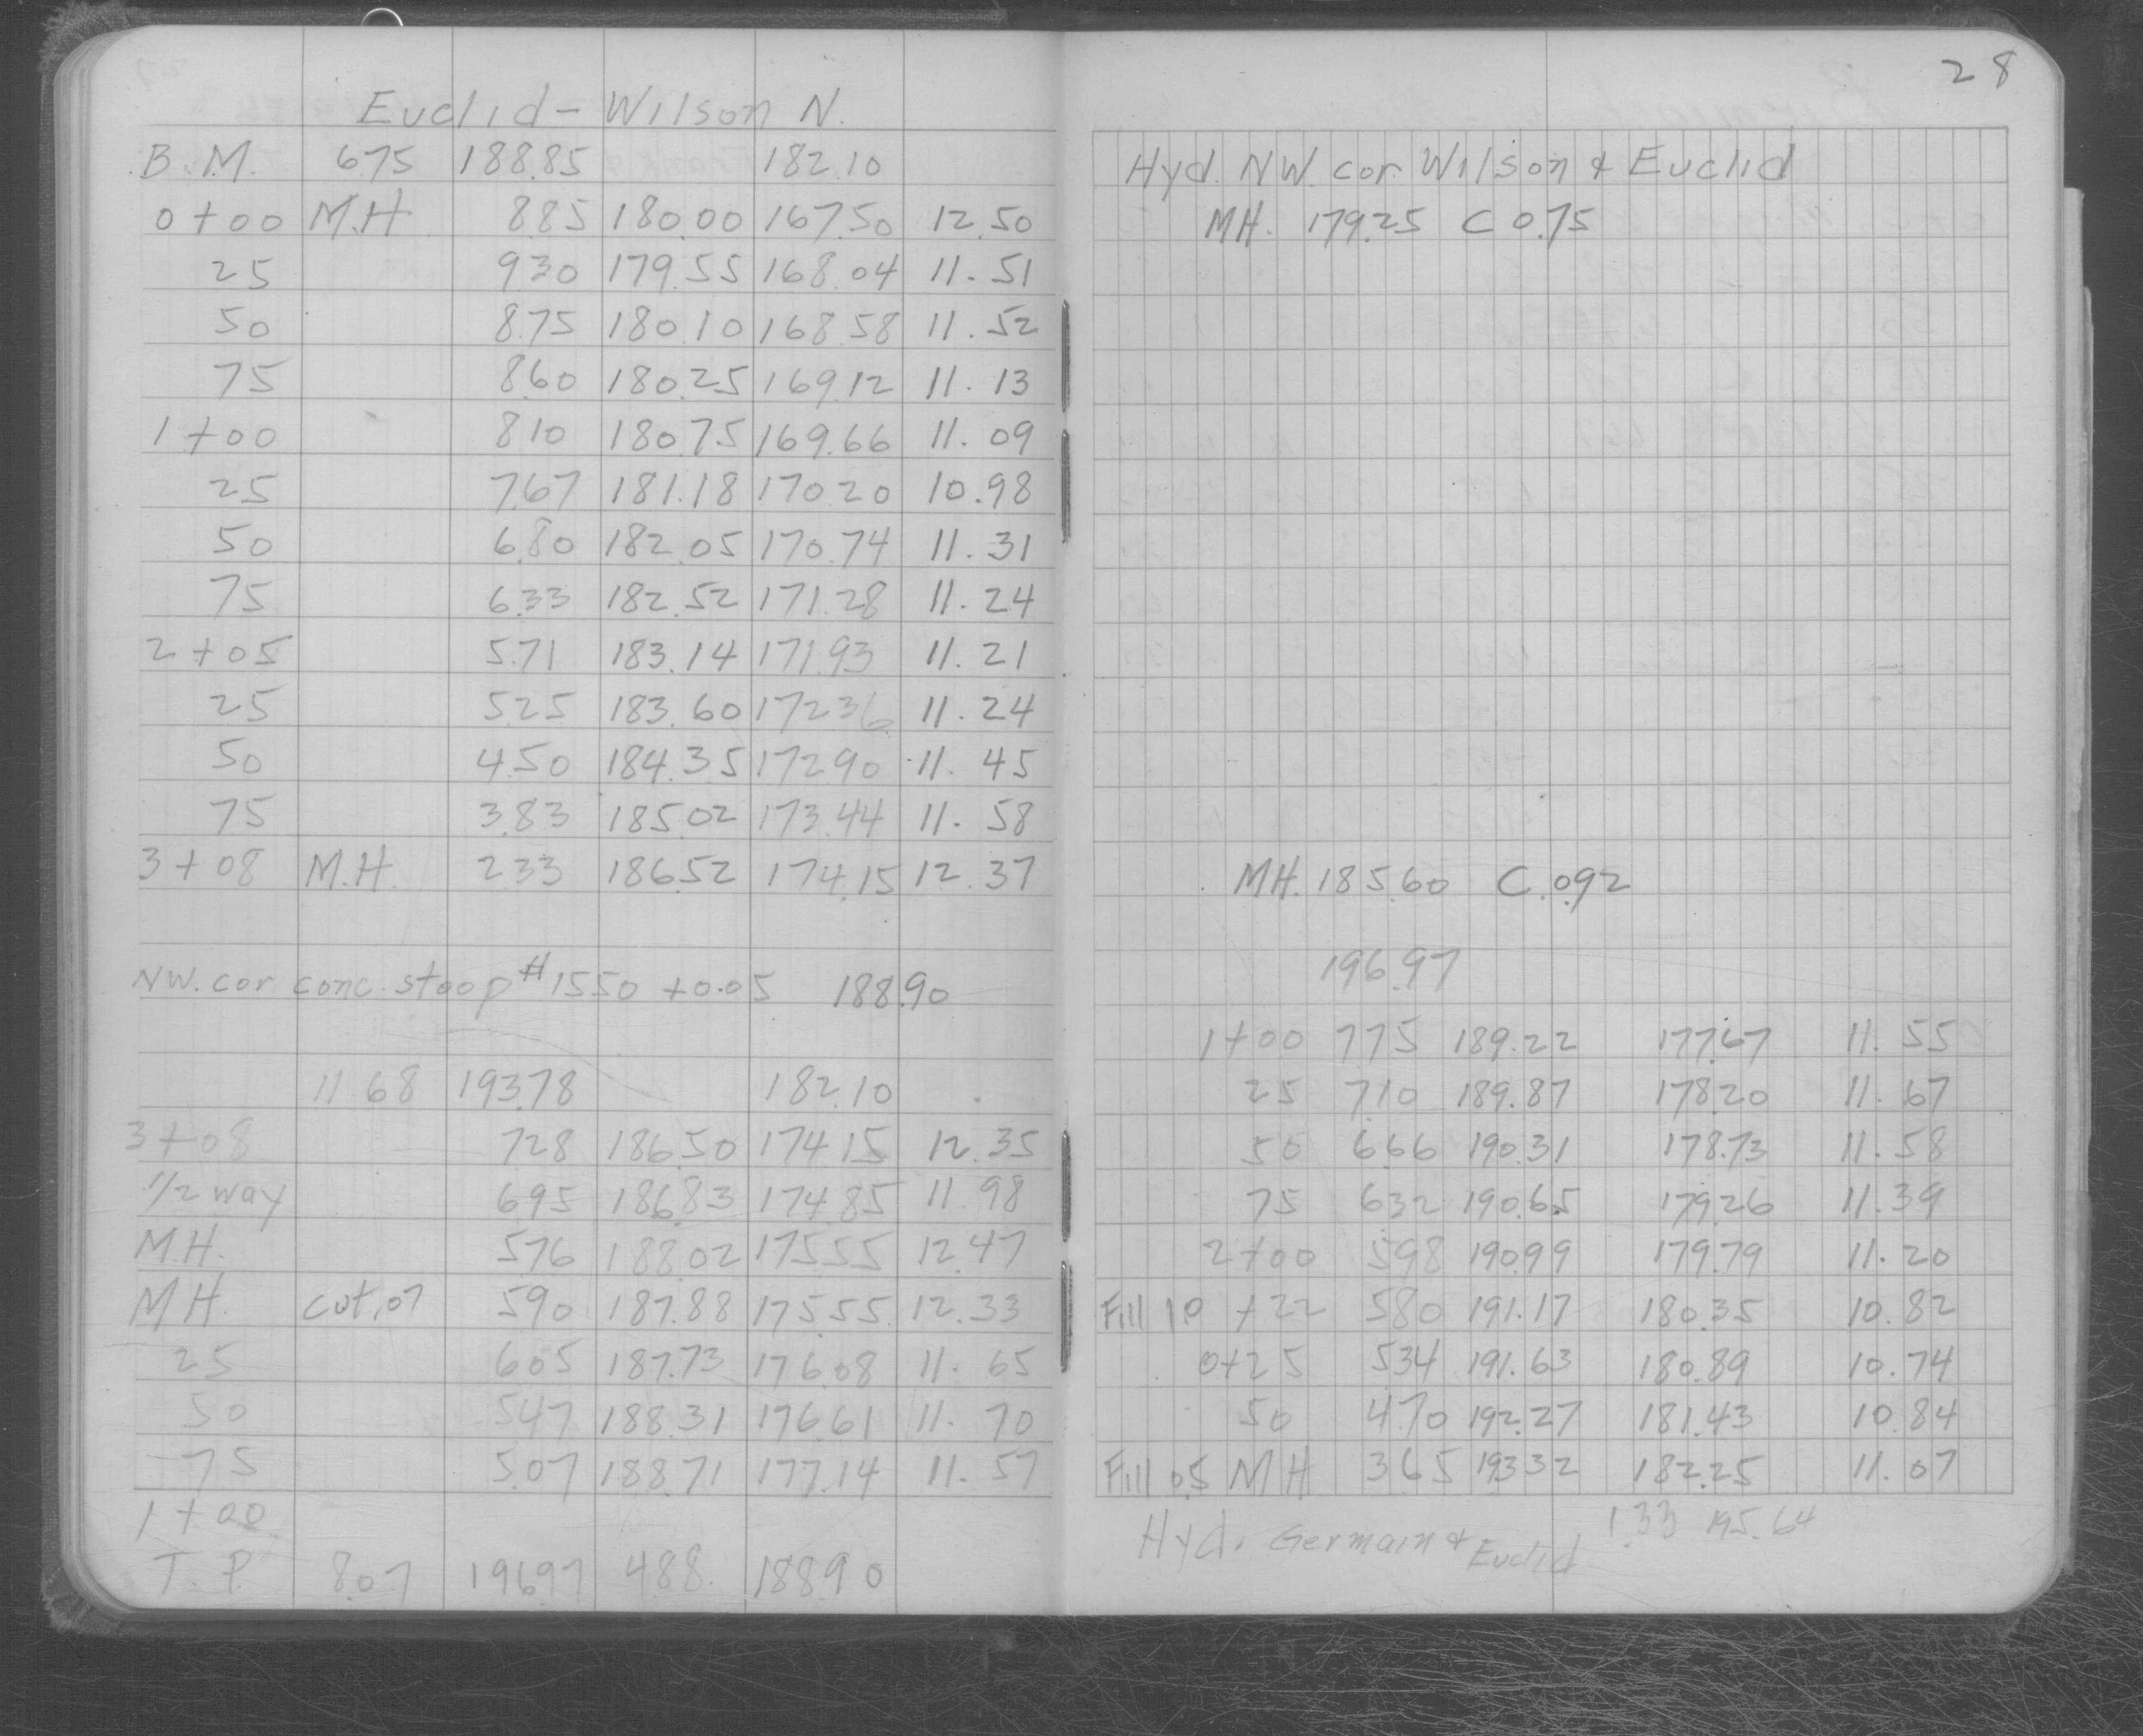 28
Euclid - Wilson N.
B.M. 6.75 188.85 182.10
0+00 M.H. 8.85 180.00 167.50 12.50
25 9.30 179.55 168.04 11.51
50 8.75 180.10 168.58 11.52
75 8.60 180.25 169.12 11.13
1+00 8.10 180.75 169.66 11.09
25 7.67 181.18 170.20 10.98
50 6.80 182.05 170.74 11.31
75 6.33 182.52 171.28 11.24
2+05 5.71 183.14 171.93 11.21
25 5.25 183.60 172.36 11.24
50 4.50 184.35 172.90 11.45
75 3.83 185.02 173.44 11.58
3+08 M.H. 2.33 186.52 174.15 12.37
NW. cor conc. stoop #1550 +0.05 188.90
11.68 193.78 182.10
3+08 7.28 186.50 174.15 12.35
1/2 way 6.95 186.83 174.85 11.98
M.H. 5.76 188.02 175.55 12.47
M.H. cut .07 5.90 187.88 175.55 12.33
25 6.05 187.73 176.08 11.65
50 5.47 188.31 176.61 11.70
75 5.07 188.71 177.14 11.57
1+00
T.P. 8.07 196.97 4.88 188.90
Hyd. NW. cor. Wilson & Euclid
MH. 179.25 C 0.75
MH. 185.60 C. 0.92
196.97
1+00 7.75 189.22 177.67 11.55
25 7.10 189.87 178.20 11.67
50 6.66 190.31 178.73 11.58
75 6.32 190.65 179.26 11.39
2+00 5.98 190.99 179.79 11.20
Fill 1.0 +22 5.80 191.17 180.35 10.82
0+25 5.34 191.63 180.89 10.74
50 4.70 192.27 181.43 10.84
Fill 0.5 MH 3.65 193.32 182.25 11.07
Hyd. Germain & Euclid 1.33 195.64